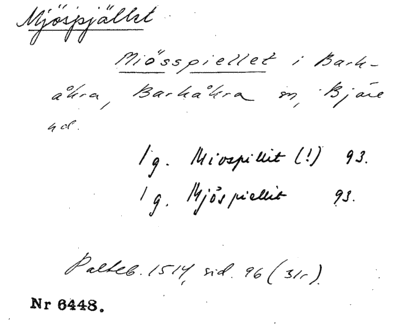 Mjöspjället
Miösspiellet i Bark-
åkra, Barkåkra sn, Bjäre
hd.
1 g. Miospillit (!) 93.
1 g. Mjöspiellit 93.
Palteb. 1514, sid. 96 (31r).
Nr 6448.